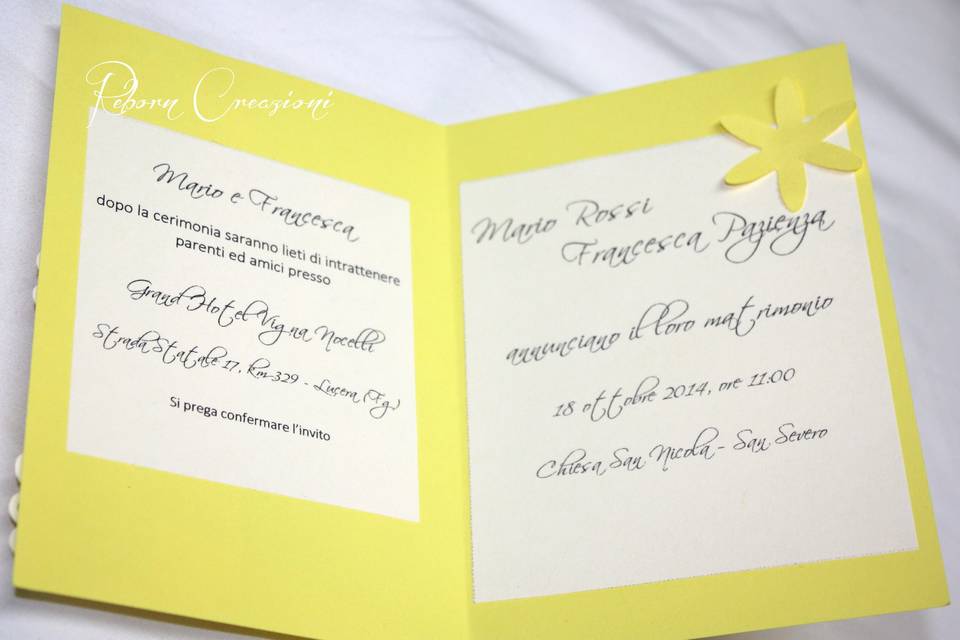 Reborn Creazioni
Mario e Francesca
dopo la cerimonia saranno lieti di intrattenere
parenti ed amici presso
Grand Hotel Vigna Nocelli
Strada Statale 17, km 329 - Lucera (Fg)
Si prega confermare l'invito
Mario Rossi
Francesca Pazienza
annunciano il loro matrimonio
18 ottobre 2014, ore 11:00
Chiesa San Nicola - San Severo